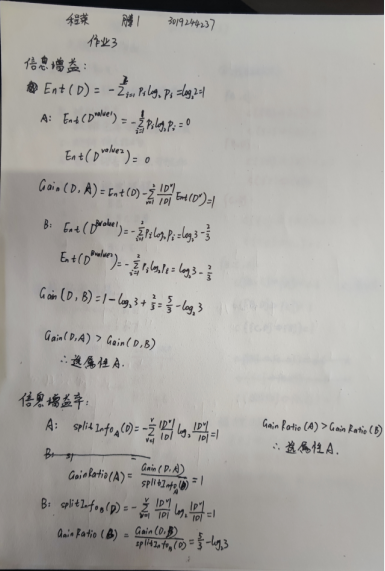 程荣 腾1 3019244237
作业3
信息增益：
Ent(D) = -∑ᵢ₌₁ pᵢ log₂ pᵢ = log₂2 = 1
A: Ent(D^value1) = -∑ᵢ₌₁ pᵢ log₂ pᵢ = 0
Ent(D^value2) = 0
Gain(D, A) = Ent(D) - ∑ᵥ₌₁² |Dᵛ|/|D| Ent(Dᵛ) = 1
B: Ent(D^value1) = -∑ᵢ₌₁² pᵢ log₂ pᵢ = log₂3 - 2/3
Ent(D^value2) = -∑ᵢ₌₁² pᵢ log₂ pᵢ = log₂3 - 2/3
Gain(D, B) = 1 - log₂3 + 2/3 = 5/3 - log₂3
Gain(D,A) > Gain(D,B)
∴选属性A.
信息增益率：
A: splitInfo_A(D) = -∑ᵥ₌₁ⱽ |Dᵛ|/|D| log₂ |Dᵛ|/|D| = 1
GainRatio(A) = Gain(D,A)/splitInfo_A(D) = 1
B: splitInfo_B(D) = -∑ᵥ₌₁ⱽ |Dᵛ|/|D| log₂ |Dᵛ|/|D| = 1
GainRatio(B) = Gain(D,B)/splitInfo_B(D) = 5/3 - log₂3
GainRatio(A) > GainRatio(B)
∴选属性A.